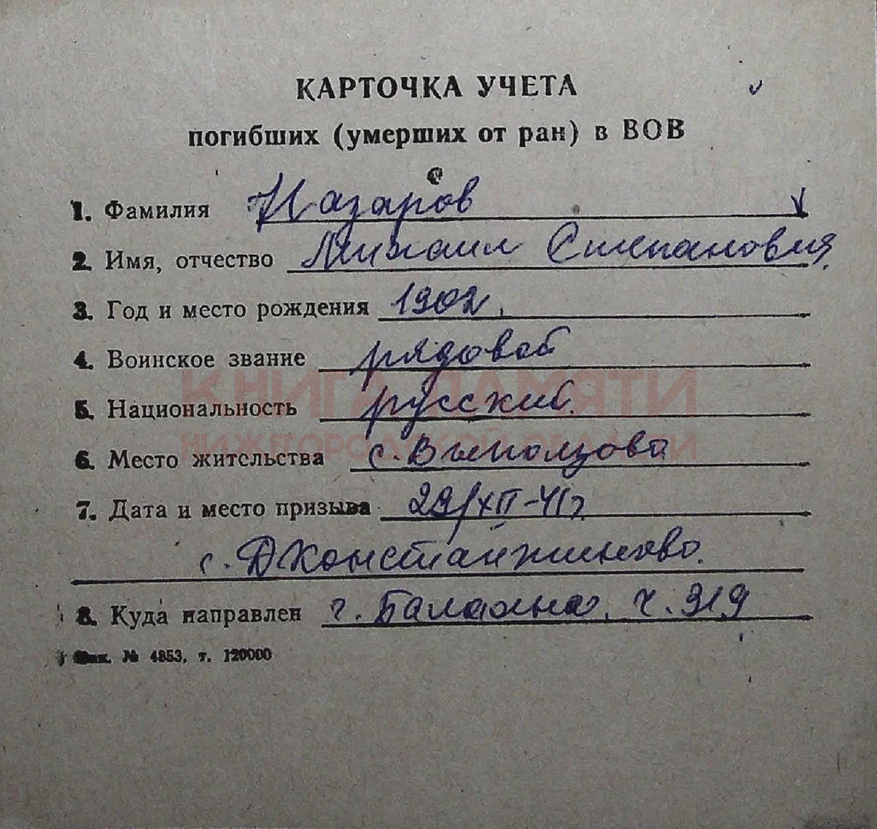 КАРТОЧКА УЧЕТА
погибших (умерших от ран) в ВОВ
1. Фамилия Назаров
2. Имя, отчество Михаил Степанович
3. Год и место рождения 1902.
4. Воинское звание рядовой
КНИГА ПАМЯТИ
5. Национальность русский.
НИЖЕГОРОДСКОЙ ОБЛАСТИ
6. Место жительства с. Выползово
7. Дата и место призыва 29/XII-41г
с. ДКонстантиново.
8. Куда направлен г. Балахна, ч. 919
Зак. № 4853, т. 120000